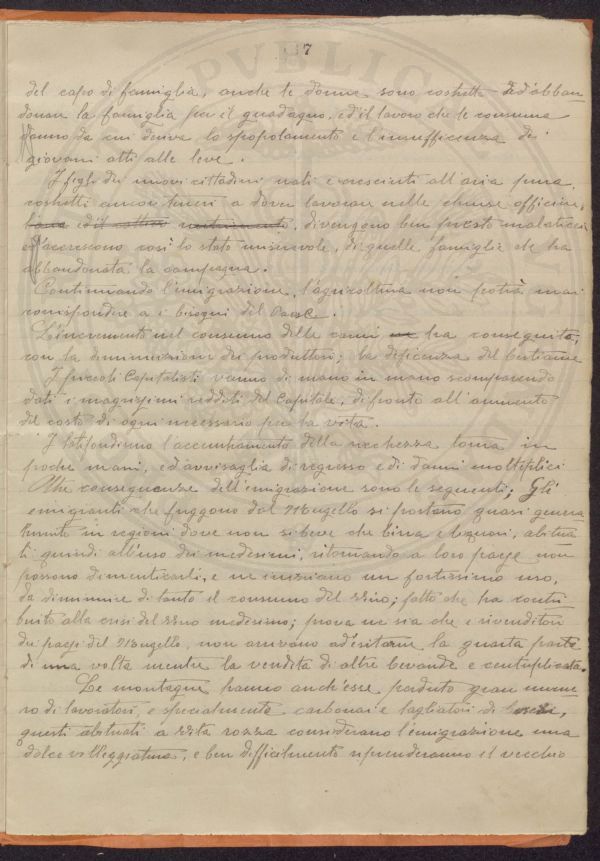 7
del capo di famiglia, anche le donne sono costrette ad abban
donar la famiglia per il guadagno, ed il lavoro che le consuma
da cui deriva lo spopolamento e l'insufficenza dei
giovani atti alle leve.
I figli dei nuovi cittadini nati e cresciuti all'aria pura,
costretti ancor teneri a dover lavorare nelle chiuse officine,
divengono ben presto malaticci
ed accrescono così lo stato miserevole, di quelle famiglie che ha
abbandonata la campagna.
Continuando l'emigrazione, l'agricoltura non potrà mai
corrispondere a i bisogni del Paese.
L'incremento nel consumo delle carni ha conseguito,
con la diminuzione dei produttori; la deficenza del bestiame
I piccoli Capitalisti vanno di mano in mano scomparendo
dati i magrissimi redditi del Capitale, di fronte all'aumento
del costo di ogni necessario per la vita.
Il latifondismo l'accentramento della ricchezza torna in
poche mani, ed avvisaglia di regresso e di danni molteplici
Altre conseguenze dell'emigrazione sono le seguenti; Gli
emigranti che fuggono dal Mugello si portano quasi genera
lmente in regioni dove non si beve che birra e liquori, abitua
ti quindi all'uso dei medesimi, ritornando a loro paese non
possono dimenticarli, e ne iniziano un fortissimo uso,
da diminuire di tanto il consumo del vino; fatto che ha contri
buito alla crisi del vino medesimo; prova ne sia che i rivenditori
dei paesi del Mugello, non arrivano ad esitarne la quarta parte
di una volta mentre la vendita di altre bevande è centuplicata.
Le montagne hanno anch'esse perduto gran nume
ro di lavoratori, e specialmente carbonai e tagliatori di boschi,
questi abituati a vita rozza considerano l'emigrazione una
dolce villeggiatura, e ben difficilmente riprenderanno il vecchio